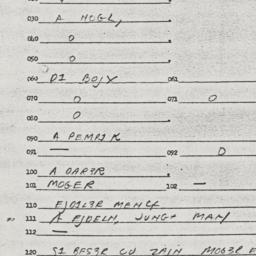 030 A HOGL,
040 O
050 O
060 DI BOJX 061
070 O 071 O
080 O
090 A PEMPIK
091 — 092 O
100 A OAR3R
101 MOGER 102 —
110 EJDIL3R MENCH
111 A EJDELN, JUNG+ MAN
112 —
120 SI BES3R CU ZAIN MOG3R